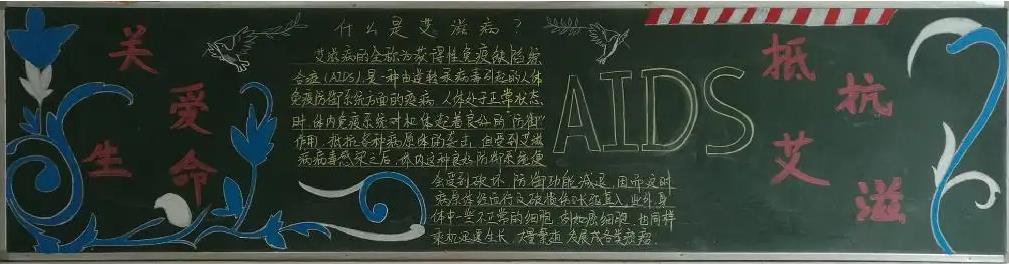 关爱生命
什么是艾滋病？
艾滋病的全称为获得性免疫缺陷综
合症(AIDS),是一种由逆转录病毒引起的人体
免疫防御系统方面的疾病,人体处于正常状态
时,体内免疫系统对机体起着良好的"防御"
作用,抵抗各种病原体的袭击,但受到艾滋
病病毒感染之后,体内这种良好防御系统便
会受到破坏,防御功能减退,因而这时
病原体经血液及破损伤口长驱直入,此外,身
体中一些不正常的细胞,例如癌细胞,也同样
乘机迅速生长,大量繁殖,发展成各类癌瘤.
AIDS
抵抗艾滋